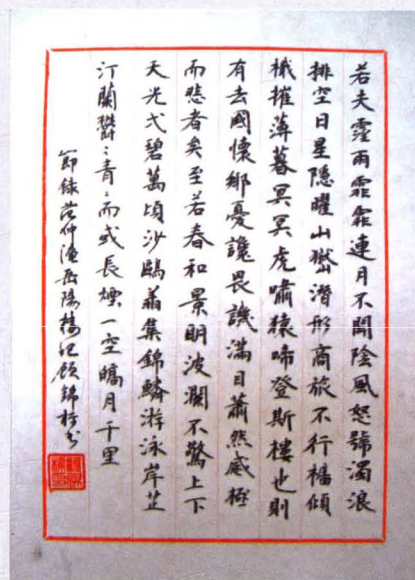 若夫霪雨霏霏連月不開陰風怒號濁浪
排空日星隱曜山嶽潛形商旅不行檣傾
檝摧薄暮冥冥虎嘯猿啼登斯樓也則
有去國懷鄉憂讒畏譏滿目蕭然感極
而悲者矣至若春和景明波瀾不驚上下
天光弌碧萬頃沙鷗集錦鱗游泳岸芷
汀蘭鬱〻青〻而或長煙一空皜月千里
節錄范仲淹岳陽樓記顧錦書